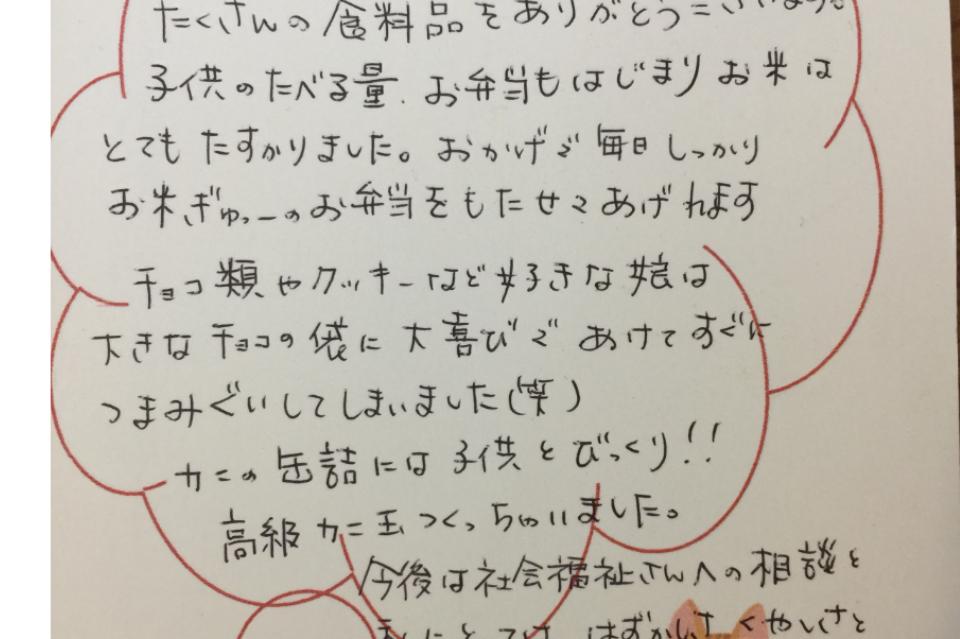 たくさんの食料品をありがとうございます。
子供のたべる量、お弁当もはじまりお米は
とてもたすかりました。おかげで毎日しっかり
お米ぎゅっーのお弁当をもたせてあげれます
チョコ類やクッキーなど好きな娘は
大きなチョコの袋に大喜びであけてすぐに
つまみぐいしてしまいました(笑)
カニの缶詰には子供とびっくり!!
高級カニ玉つくっちゃいました。
今後は社会福祉さんへの相談と
はずかしさくやしさと